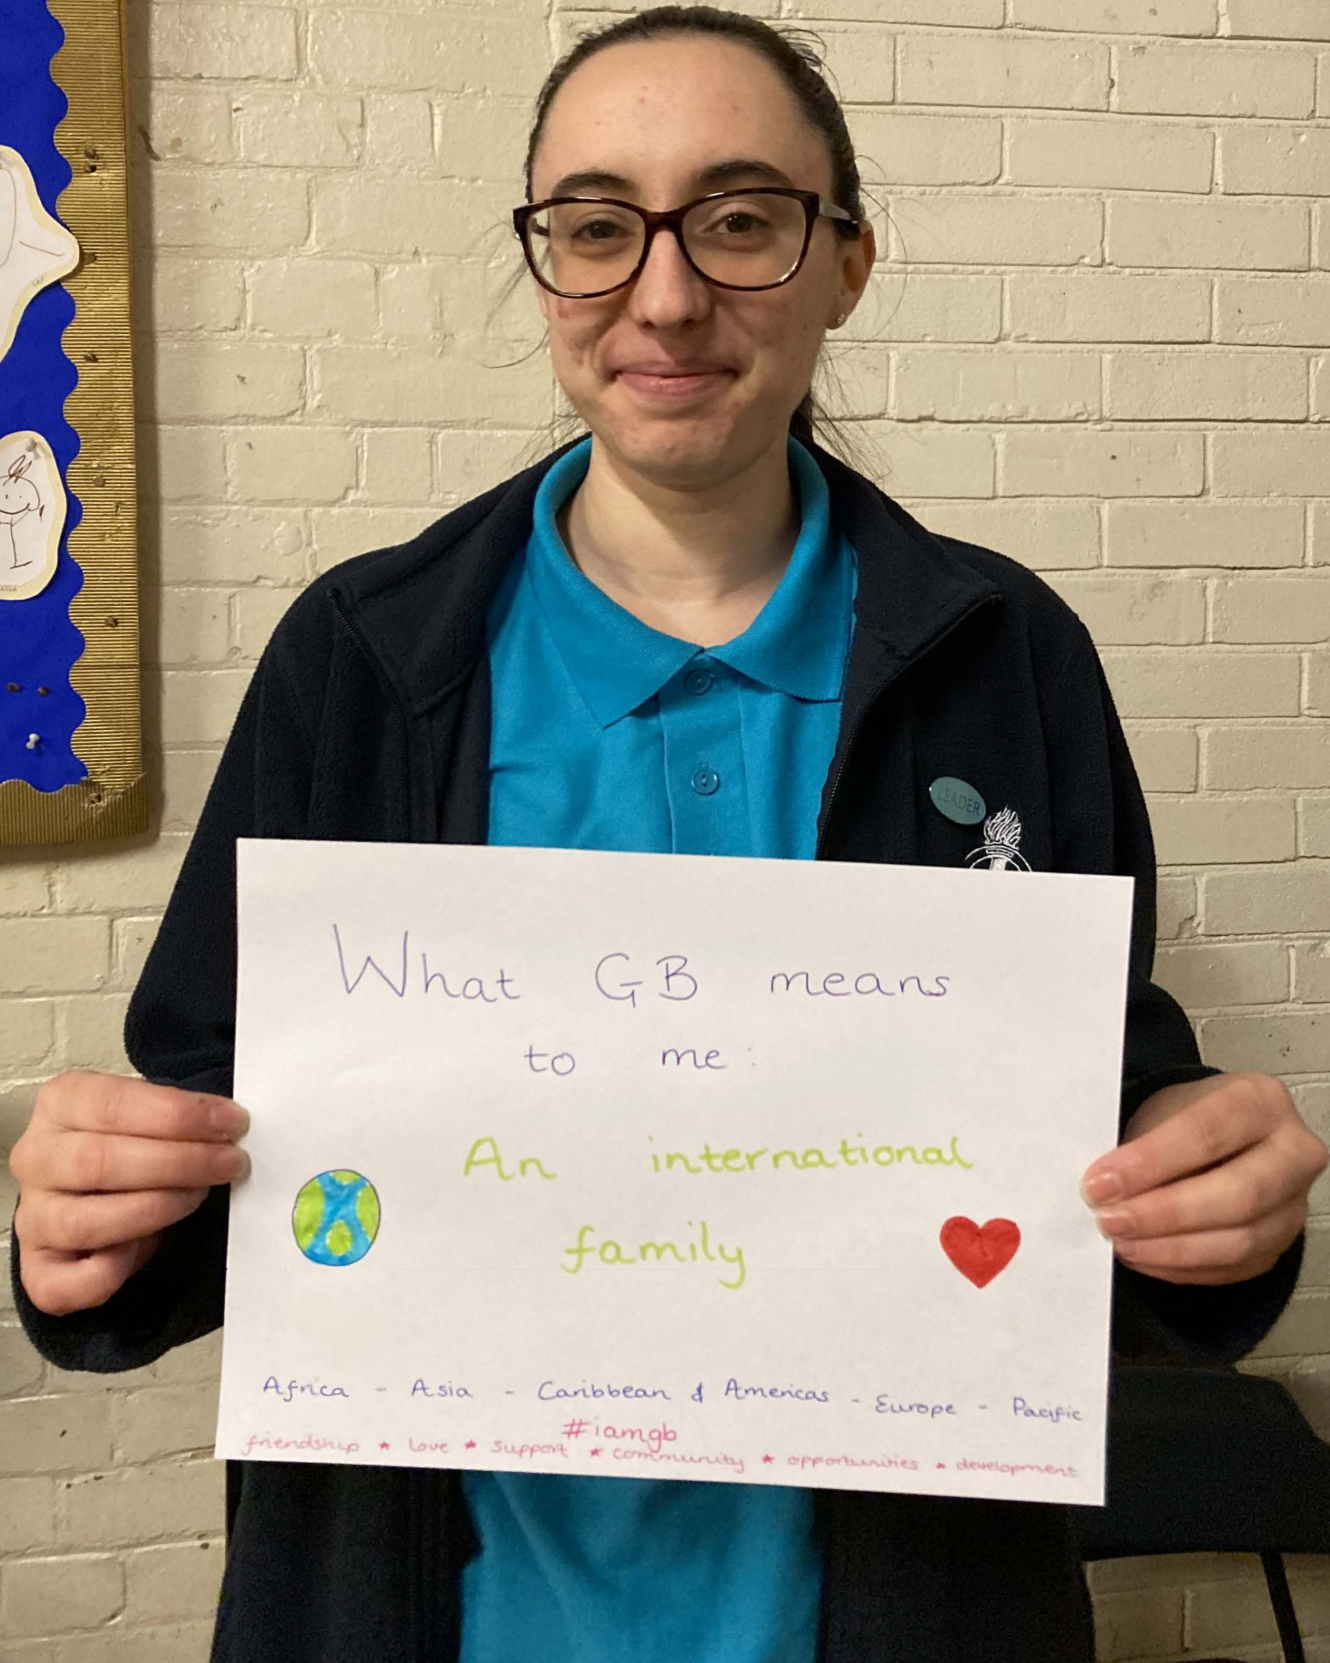 LEADER
What GB means
to me:
An international
family
Africa - Asia - Caribbean & Americas - Europe - Pacific
#iamgb
friendship ★ love ★ support ★ community ★ opportunities ★ development